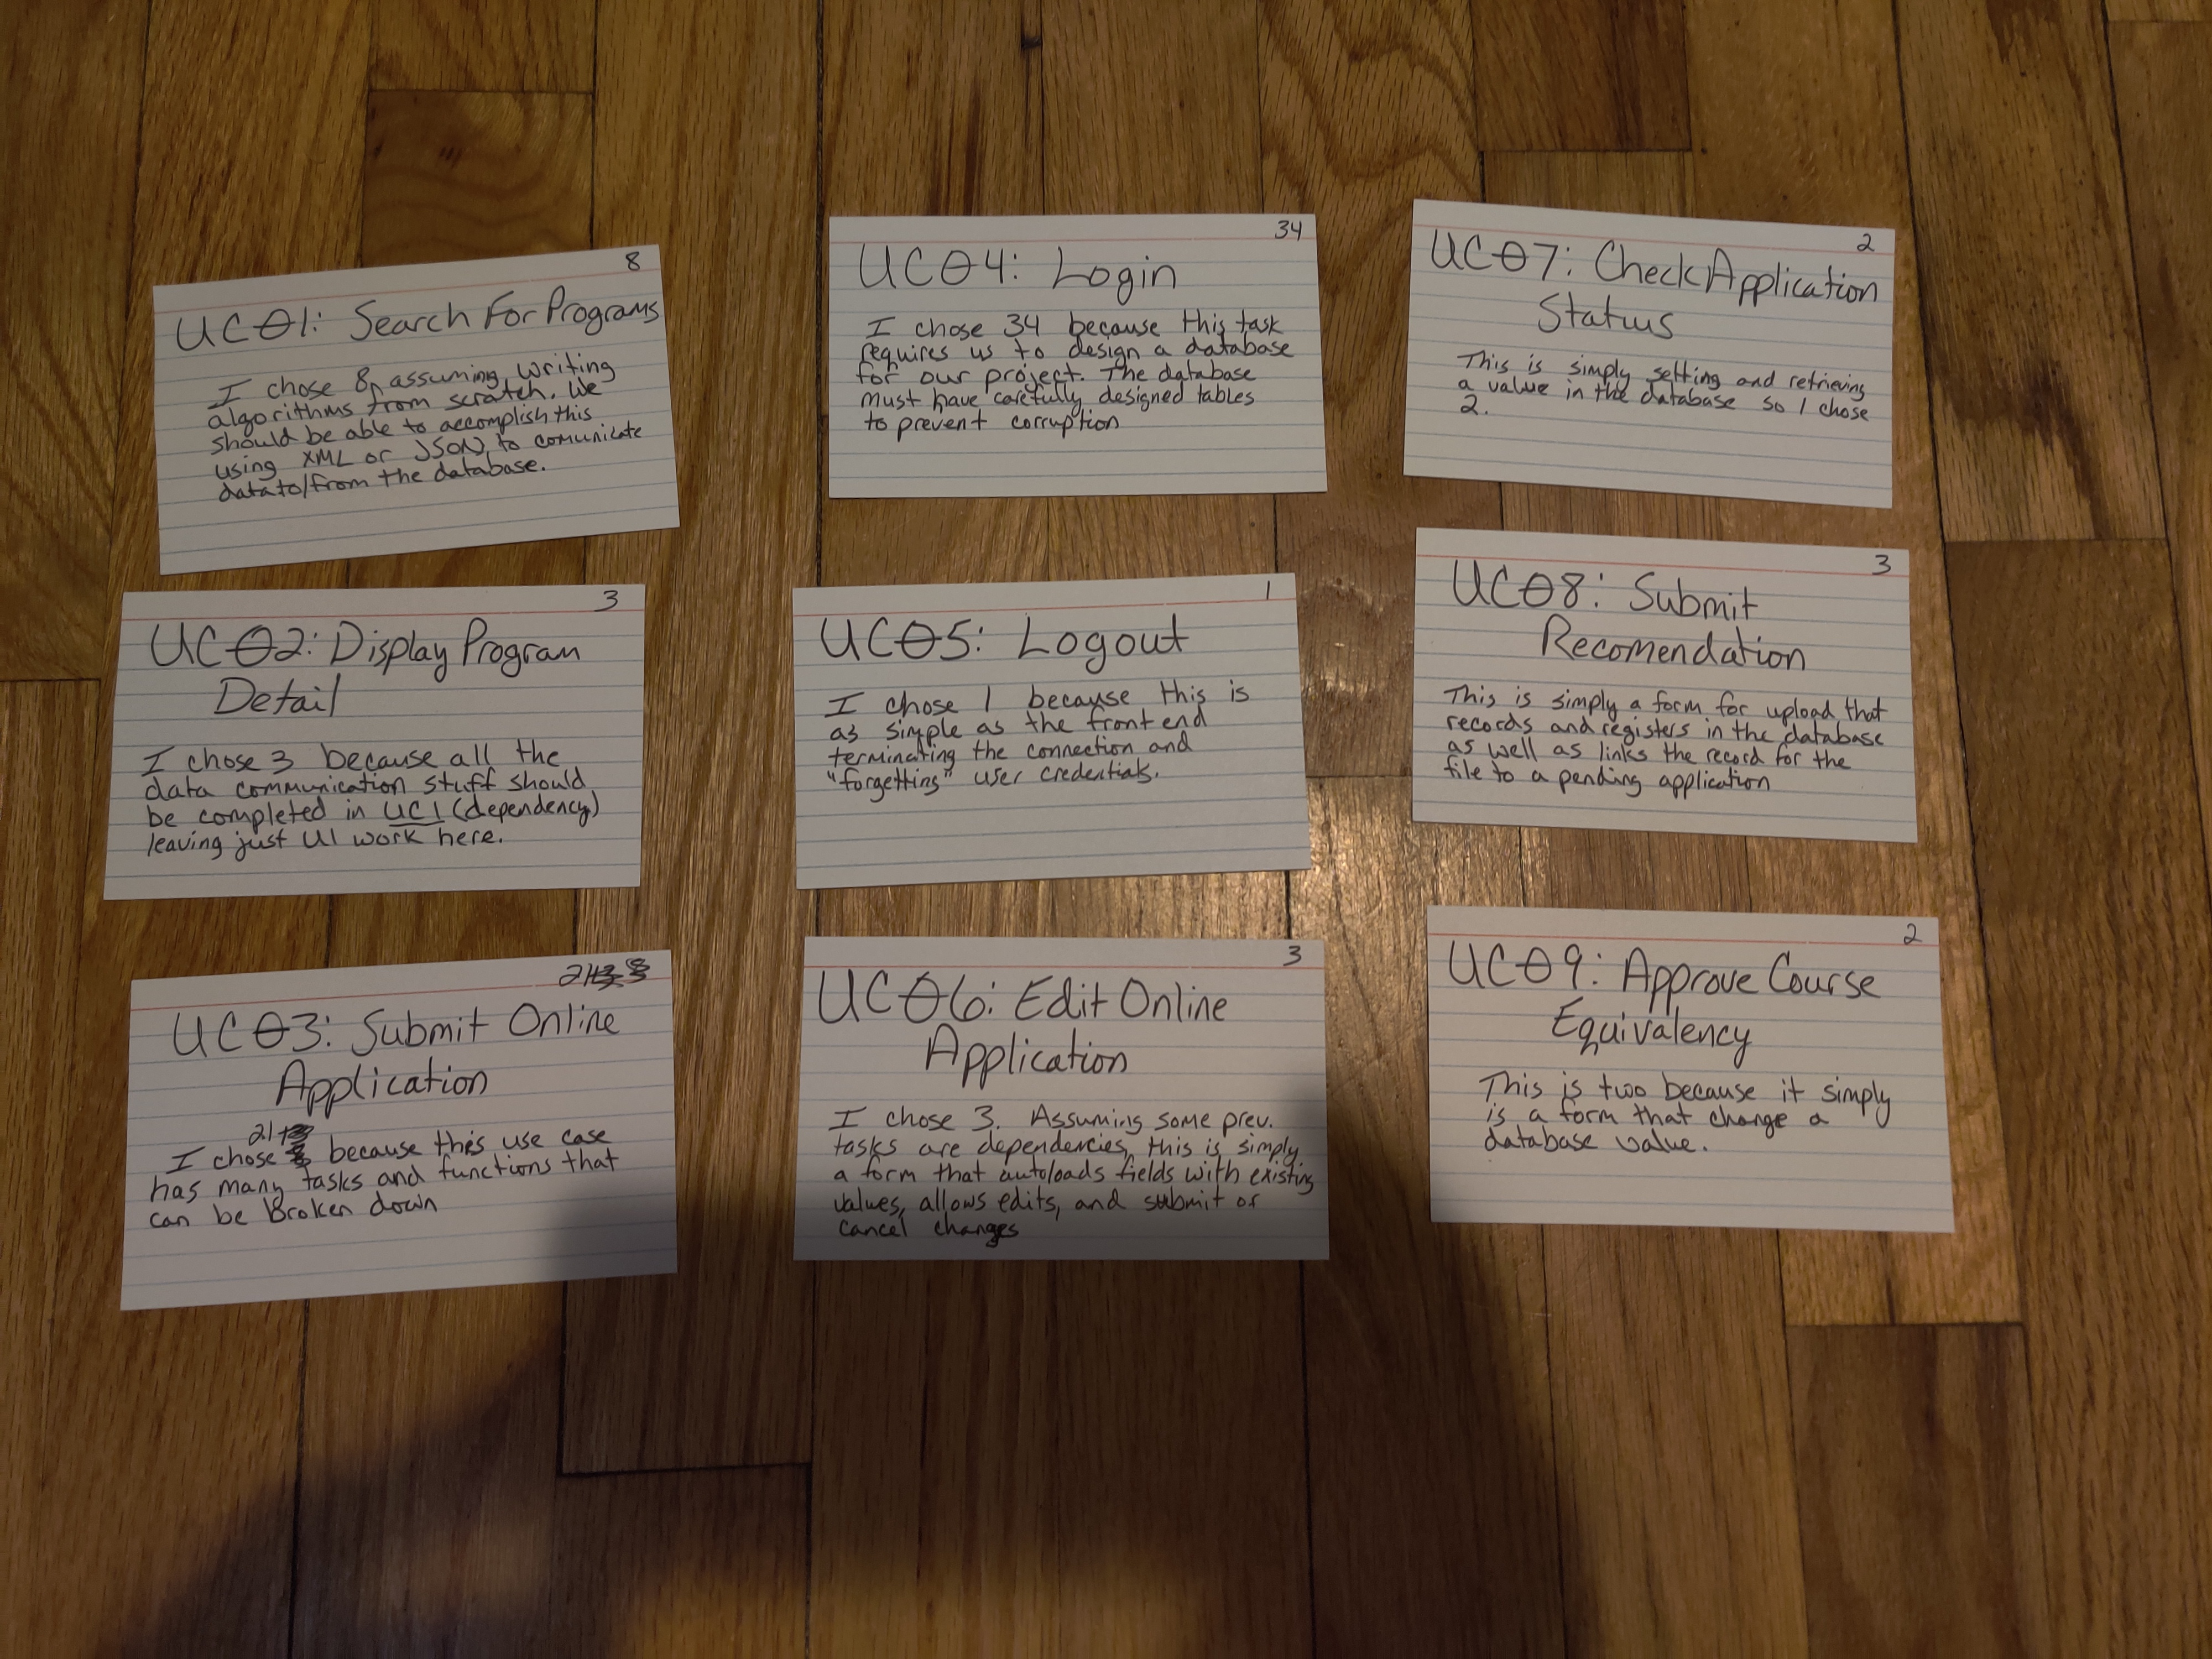 8
UC01: Search For Programs
I chose 8, assuming writing
algorithms from scratch. We
should be able to accomplish this
using XML or JSON, to comunicate
data to/from the database.
3
UC02: Display Program
Detail
I chose 3 because all the
data communication stuff should
be completed in UC1 (dependency)
leaving just UI work here.
21
UC03: Submit Online
Application
21
I chose because this use case
has many tasks and functions that
can be Broken down
34
UC04: Login
I chose 34 because this task
requires us to design a database
for our project. The database
must have carefully designed tables
to prevent corruption
1
UC05: Logout
I chose 1 because this is
as simple as the front end
terminating the connection and
"forgetting" user credentials.
3
UC06: Edit Online
Application
I chose 3. Assuming some prev.
tasks are dependencies, this is simply
a form that autoloads fields with existing
values, allows edits, and submit or
cancel changes
2
UC07: Check Application
Status
This is simply setting and retrieving
a value in the database so I chose
2.
3
UC08: Submit
Recomendation
This is simply a form for upload that
records and registers in the database
as well as links the record for the
file to a pending application
2
UC09: Approve Course
Equivalency
This is two because it simply
is a form that change a
database value.